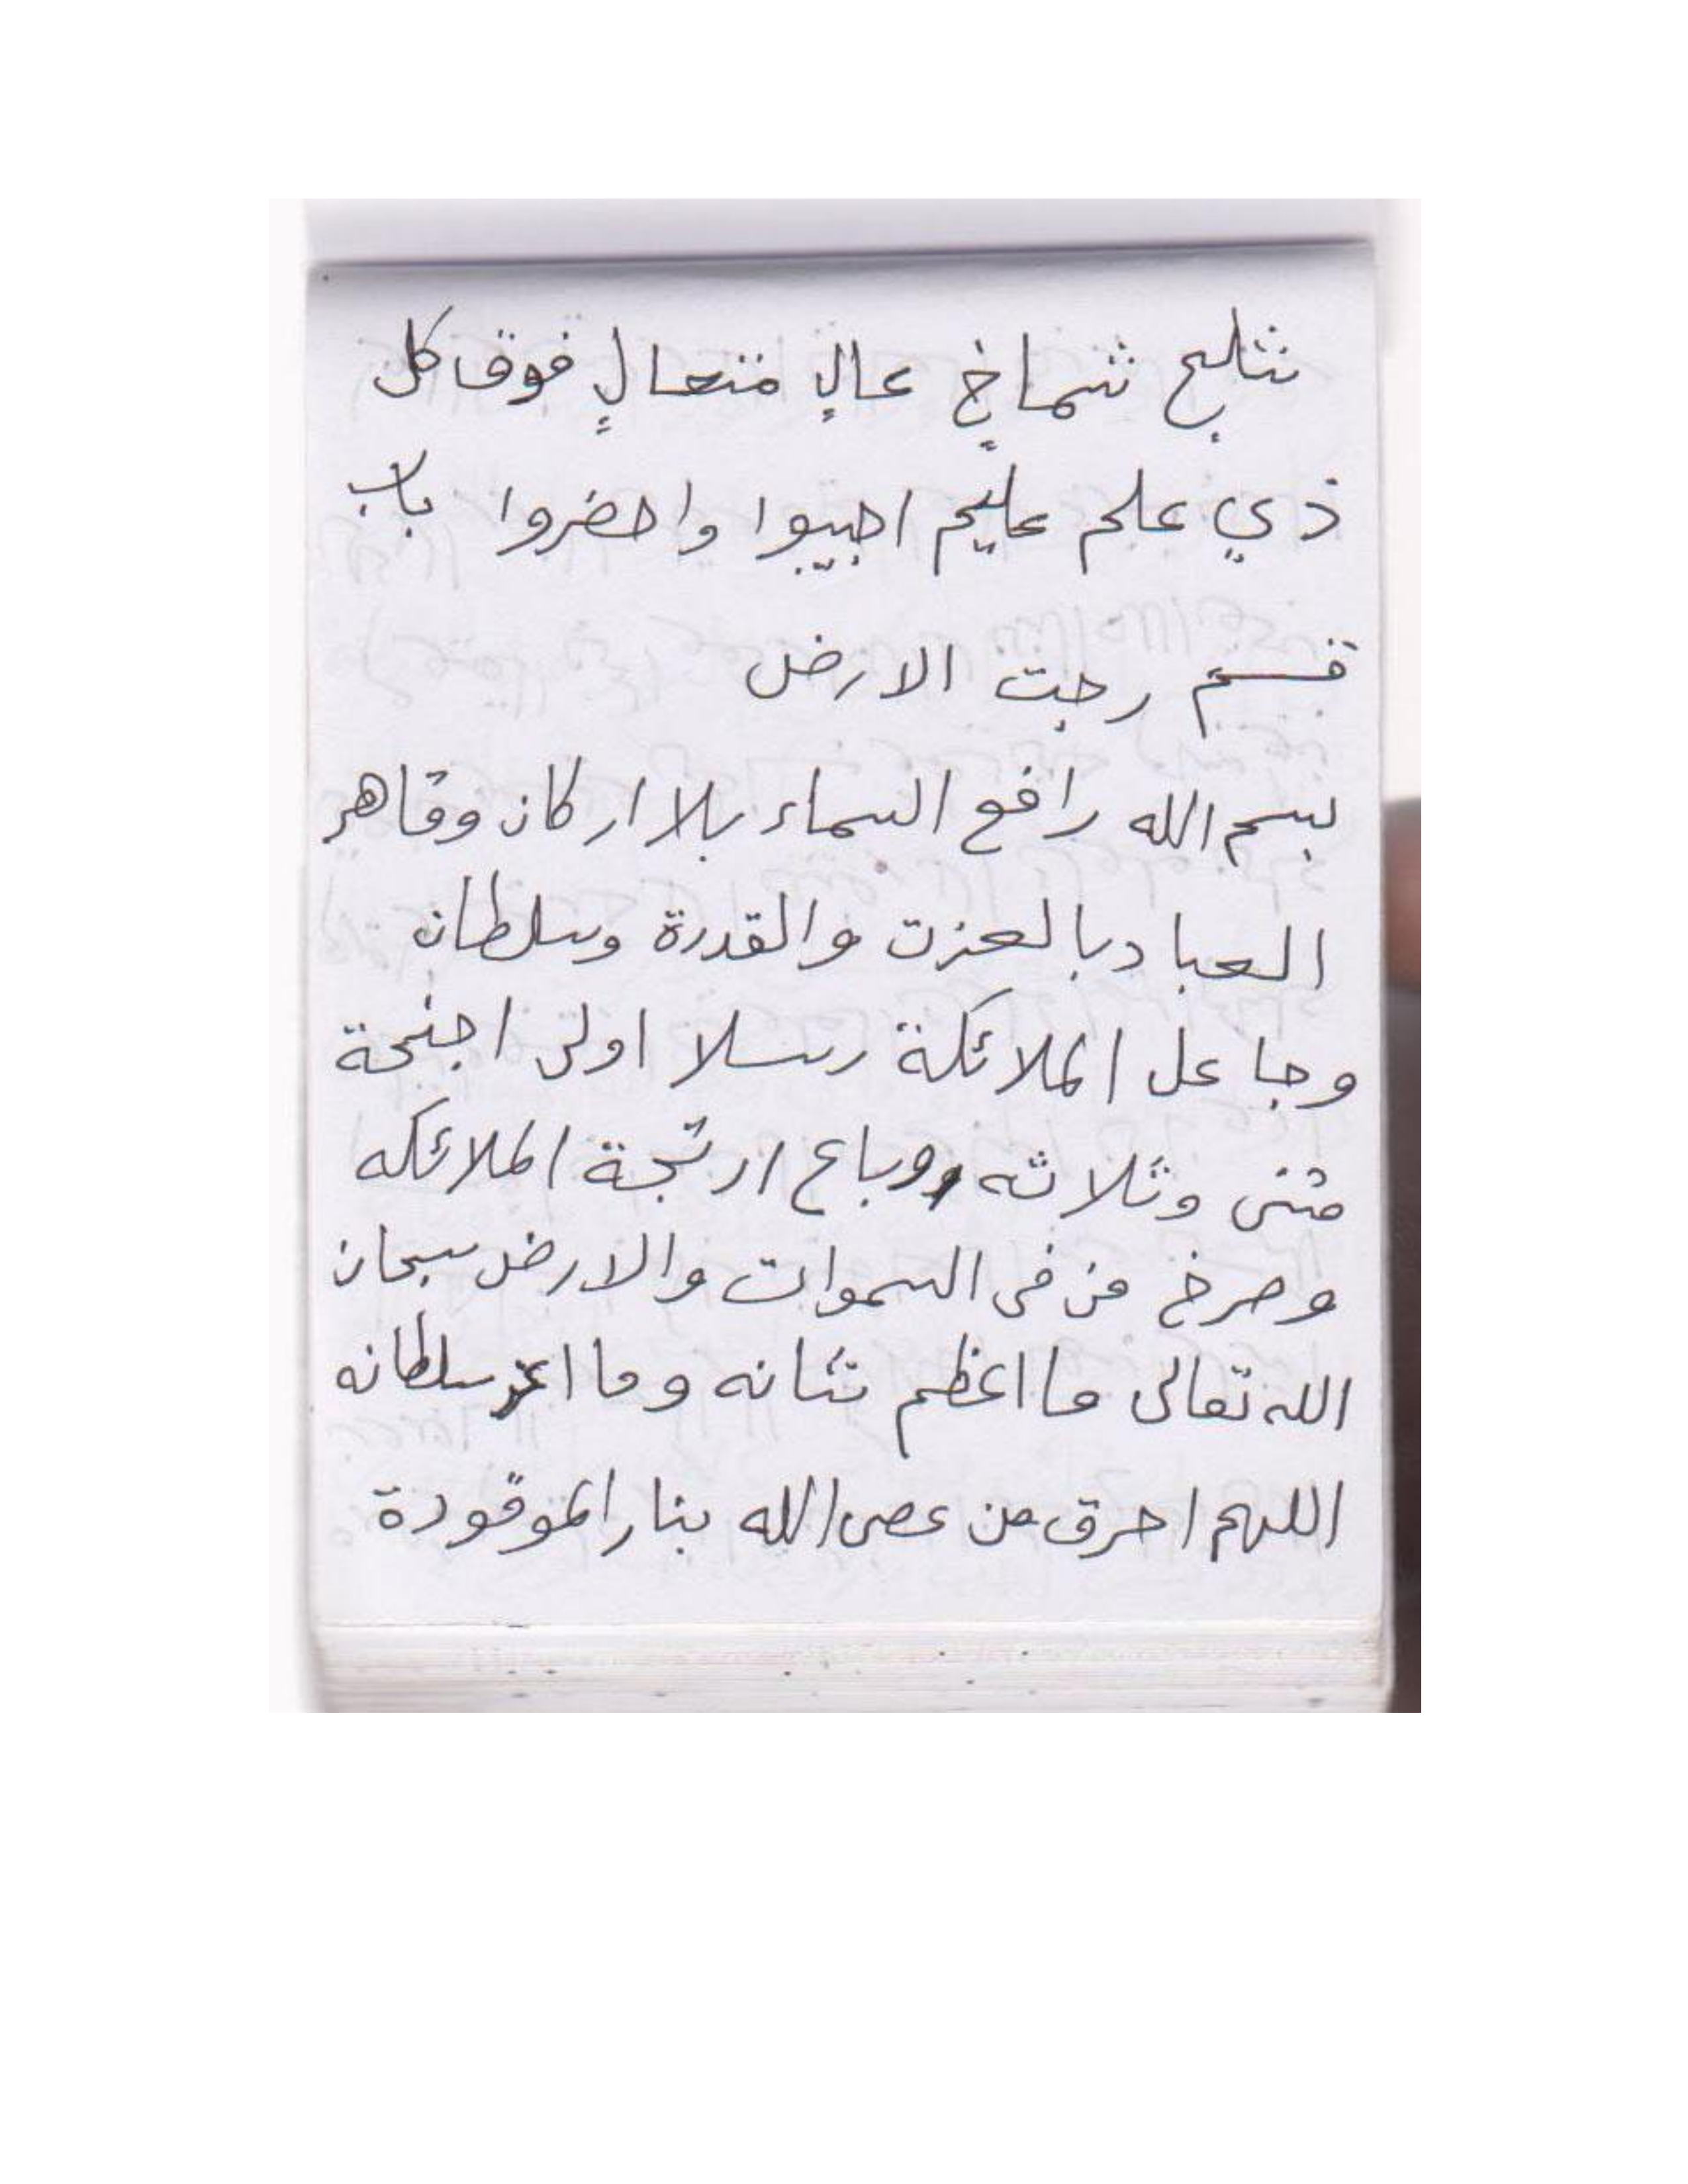 شلیخ شماخٍ عالٍ متعالٍ فوق كل
ذي علم عليم اجيبوا واحضروا باب
قسم رجت الارض
بسم الله رافع السماء بلا اركان وقاهر
العباد بالعزت والقدرة وسلطان
وجاعل الملائكة رسلا اولى اجنحة
مثنى وثلاثه ورباع ارتجة الملائكه
وصرخ من فى السموات والارض سبحان
الله تعالى ما اعظم شانه وما اعز سلطانه
اللهم احرق من عصى الله بنار الموقودة